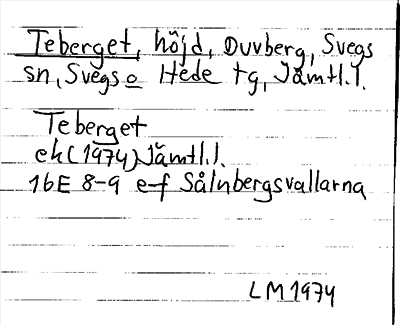 Teberget, höjd, Duvberg, Svegs
sn, Svegs o Hede tg, Jämtl.l.
Teberget
ek (1974) Jämtl.l.
16E 8-9 e-f Sålnbergsvallarna
LM 1974